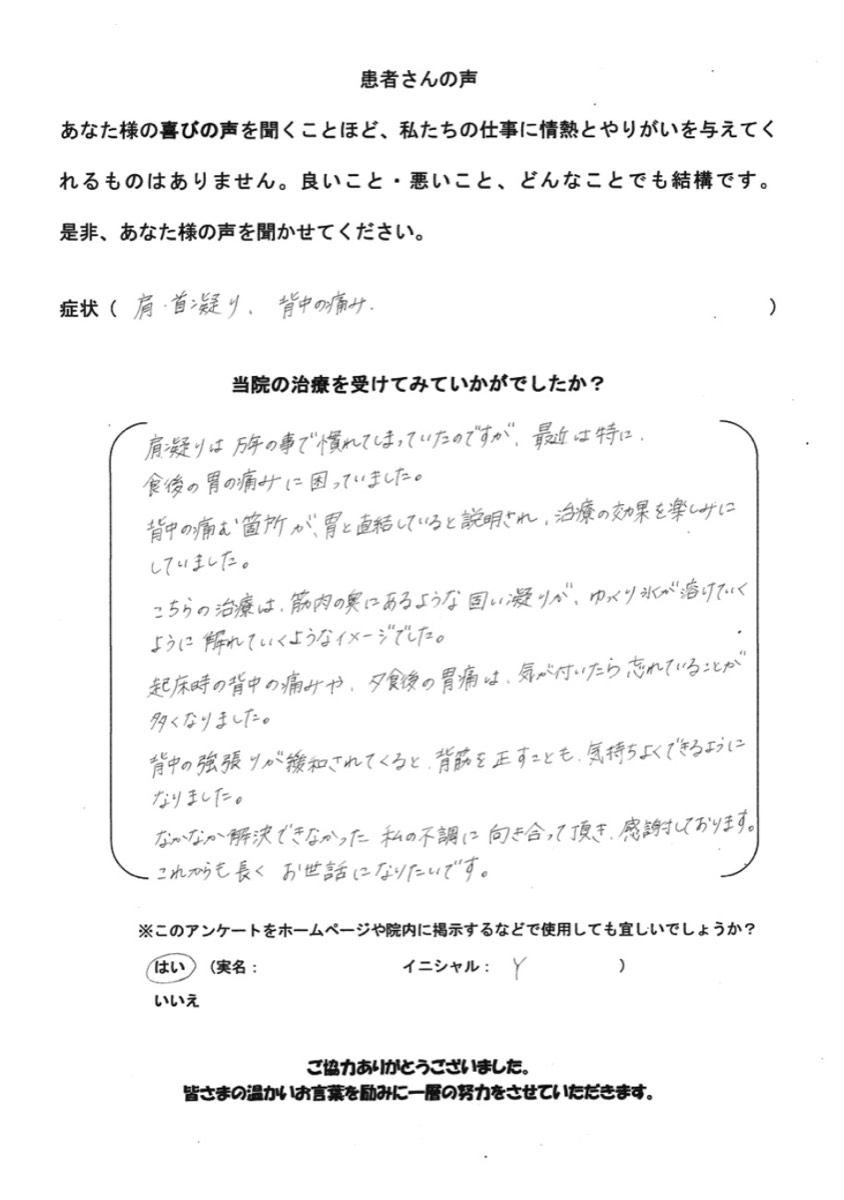 患者さんの声
あなた様の喜びの声を聞くことほど、私たちの仕事に情熱とやりがいを与えてく
れるものはありません。良いこと・悪いこと、どんなことでも結構です。
是非、あなた様の声を聞かせてください。
症状（ 肩・首凝り、背中の痛み. ）
当院の治療を受けてみていかがでしたか？
肩凝りは万年の事で慣れてしまっていたのですが、最近は特に、
食後の胃の痛みに困っていました。
背中の痛む箇所が、胃と直結していると説明され、治療の効果を楽しみに
していました。
こちらの治療は、筋肉の奥にあるような固い凝りが、ゆっくり氷が溶けていく
ように解れていくようなイメージでした。
起床時の背中の痛みや、夕食後の胃痛は、気が付いたら忘れていることが
多くなりました。
背中の強張りが緩和されてくると、背筋を正すことも、気持ちよくできるように
なりました。
なかなか解決できなかった私の不調に向き合って頂き、感謝しております。
これからも長くお世話になりたいです。
※このアンケートをホームページや院内に掲示するなどで使用しても宜しいでしょうか？
はい （実名： イニシャル： Y ）
いいえ
ご協力ありがとうございました。
皆さまの温かいお言葉を励みに一層の努力をさせていただきます。